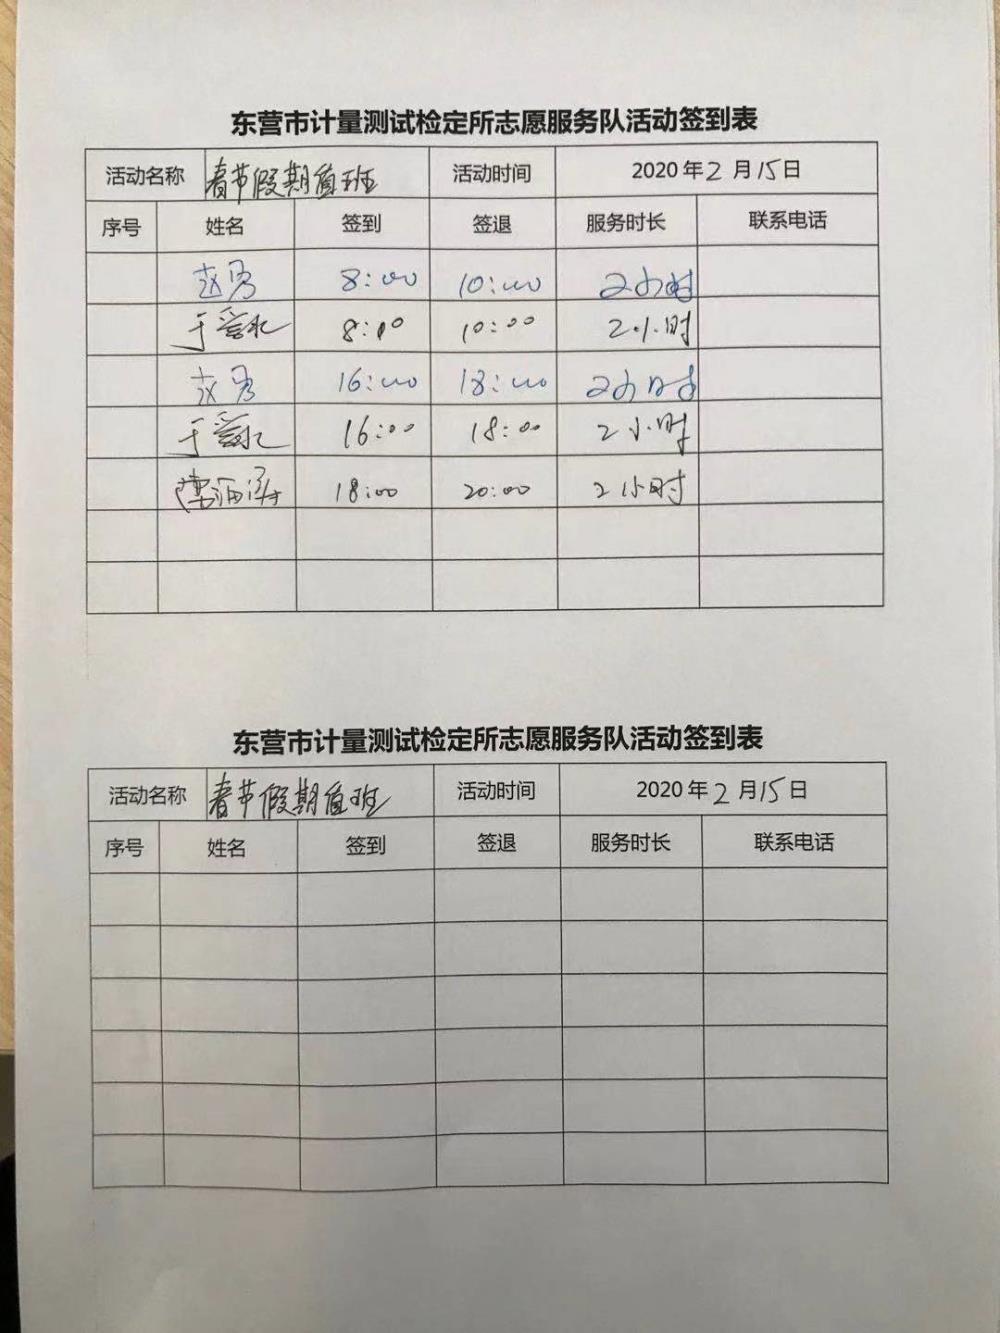 东营市计量测试检定所志愿服务队活动签到表
活动名称 春节假期值班 活动时间 2020年2月15日
序号 姓名 签到 签退 服务时长 联系电话
赵勇 8:00 10:00 2小时
于爱永 8:00 10:00 2小时
赵勇 16:00 18:00 2小时
于爱永 16:00 18:00 2小时
18:00 20:00 2小时
东营市计量测试检定所志愿服务队活动签到表
活动名称 春节假期值班 活动时间 2020年2月15日
序号 姓名 签到 签退 服务时长 联系电话